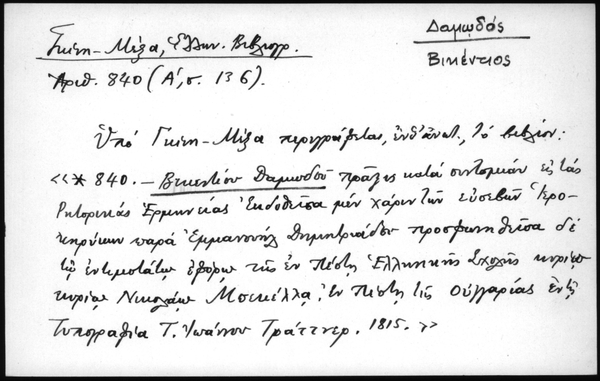 Γκίνη-Μέξα, Ἑλλην. Βιβλιογρ.
Ἀριθ. 840 (Α΄, σ. 136).
Δαμωδός
Βικέντιος
Ὑπό Γκίνη-Μέξα περιγράφεται, ἐνθ' ἀνωτ., τό βιβλίον:
«* 840. – Βικεντίου Δαμωδοῦ πρᾶξις κατά συντομίαν εἰς τάς
Ρητορικάς Ἑρμηνείας Ἐκδοθεῖσα μέν χάριν τῶν εὐσεβῶν Ἱερο-
κηρύκων παρά Ἐμμανουήλ Δημητριάδου προσφωνηθεῖσα δέ
τῷ ἐντιμοτάτῳ ἐφόρῳ τῆς ἐν Πέστῃ Ἑλληνικῆς Σχολῆς κυρίῳ
κυρίῳ Νικολάῳ Μπεκέλλα. Ἐν Πέστῃ τῆς Οὐγγαρίας ἐν τῇ
Τυπογραφίᾳ Τ. Ἰωάννου Τράττνερ. 1815. »